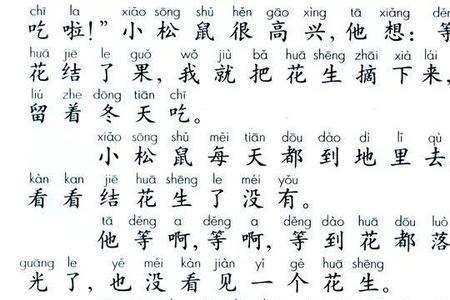 chī la xiǎo sōng shǔ hěn gāo xìng tā xiǎng děn
吃啦!”小松鼠很高兴,他想:等
huā jiē le guǒ wǒ jiù bǎ huā shēng zhāi xià lái
花结了果,我就把花生摘下来,
liú zhe dōng tiān chī
留着冬天吃。
xiǎo sōng shǔ měi tiān dōu dào dì lǐ qù
小松鼠每天都到地里去
kàn kan jiē huā shēng le méi yǒu
看看结花生了没有。
tā děng a děng a děng dào huā dōu luò
他等啊,等啊,等到花都落
guāng le yě méi kàn jiàn yí gè huā shēng
光了,也没看见一个花生。